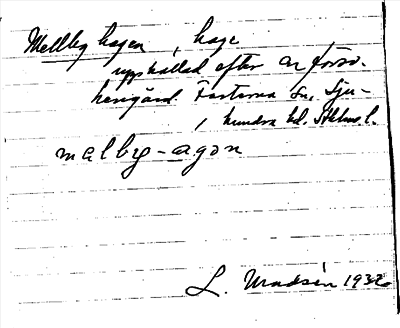 Mellby hagen, hage
uppkallad efter en försv.
herrgård. Fasterna sn, Sju-
hundra hd. Sthlms l.
melby-agen
L. Madsén 1932